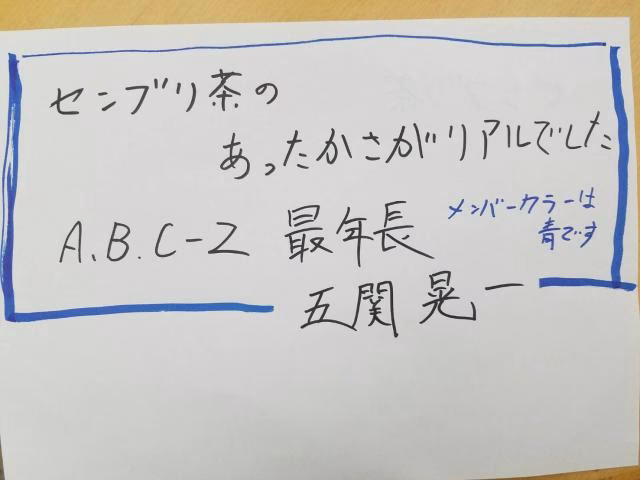 センブリ茶の
あったかさがリアルでした
A.B.C-Z 最年長
メンバーカラーは
青です
五関晃一